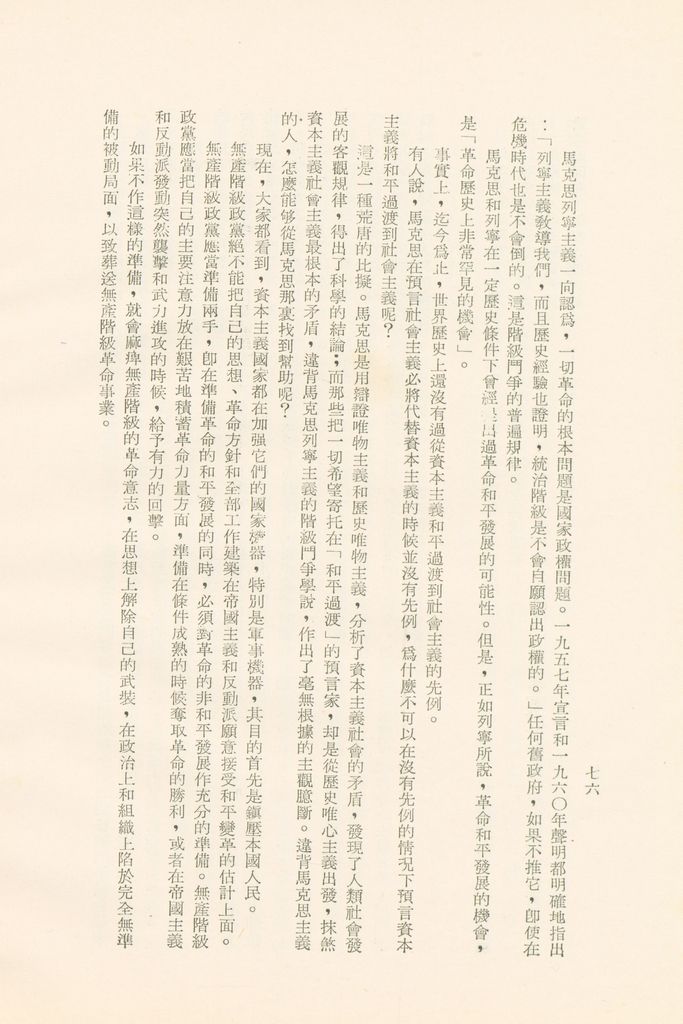 七六
馬克思列寧主義一向認爲，一切革命的根本問題是國家政權問題。一九五七年宣言和一九六〇年聲明都明確地指出
：「列寧主義敎導我們，而且歷史經驗也證明，統治階級是不會自願認出政權的。」任何舊政府，如果不推它，卽使在
危機時代也是不會倒的。這是階級鬥爭的普遍規律。
馬克思和列寧在一定歷史條件下會經提出過革命和平發展的可能性。但是，正如列寧所說，革命和平發展的機會，
是「革命歷史上非常罕見的機會」。
事實上，迄今爲止，世界歷史上還沒有過從資本主義和平過渡到社會主義的先例。
有人說，馬克思在預言社會主義必將代替資本主義的時候並沒有先例，爲什麼不可以在沒有先例的情況下預言資本
主義將和平過渡到社會主義呢？
這是一種荒唐的比擬。馬克思是用辯證唯物主義和歷史唯物主義，分析了資本主義社會的矛盾，發現了人類社會發
展的客觀規律，得出了科學的結論；而那些把一切希望寄托在「和平過渡」的預言家，却是從歷史唯心主義出發，抹煞
資本主義社會主義最根本的矛盾，違背馬克思列寧主義的階級鬥爭學說，作出了毫無根據的主觀臆斷。違背馬克思主義
的人，怎麼能够從馬克思那裏找到幫助呢？
現在，大家都看到，資本主義國家都在加强它們的國家機器，特別是軍事機器，其目的首先是鎭壓本國人民。
無產階級政黨絕不能把自己的思想、革命方針和全部工作建築在帝國主義和反動派願意接受和平變革的估計上面。
無產階級政黨應當準備兩手，卽在準備革命的和平發展的同時，必須對革命的非和平發展作充分的準備。無產階級
政黨應當把自己的主要注意力放在艱苦地積蓄革命力量方面，準備在條件成熟的時候奪取革命的勝利，或者在帝國主義
和反動派發動突然襲擊和武力進攻的時候，給予有力的回擊。
如果不作這樣的準備，就會麻痺無產階級的革命意志，在思想上解除自己的武裝，在政治上和組織上陷於完全無準
備的被動局面，以致葬送無產階級革命事業。